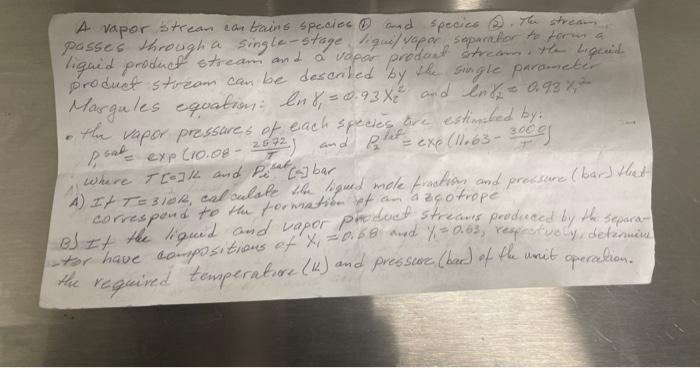 A vapor stream contains species ① and species ②. The stream
passes through a single-stage liquid/vapor separator to form a
liquid product stream and a vapor product stream. The liquid
product stream can be described by the single parameter
Margules equation: ln γ₁ = 0.93 X₂² and ln γ₂ = 0.93 X₁²
• the vapor pressures of each species are estimated by:
P₁ˢᵃᵗ = exp (10.08 - 2572/T) and P₂ˢᵃᵗ = exp (11.63 - 3000/T)
where T [=] K and Pᵢˢᵃᵗ [=] bar
A) If T = 310K, calculate the liquid mole fraction and pressure (bar) that
correspond to the formation of an azeotrope
B) If the liquid and vapor product streams produced by the separa-
tor have compositions of X₁ = 0.68 and Y₁ = 0.63, respectively, determine
the required temperature (K) and pressure (bar) of the unit operation.